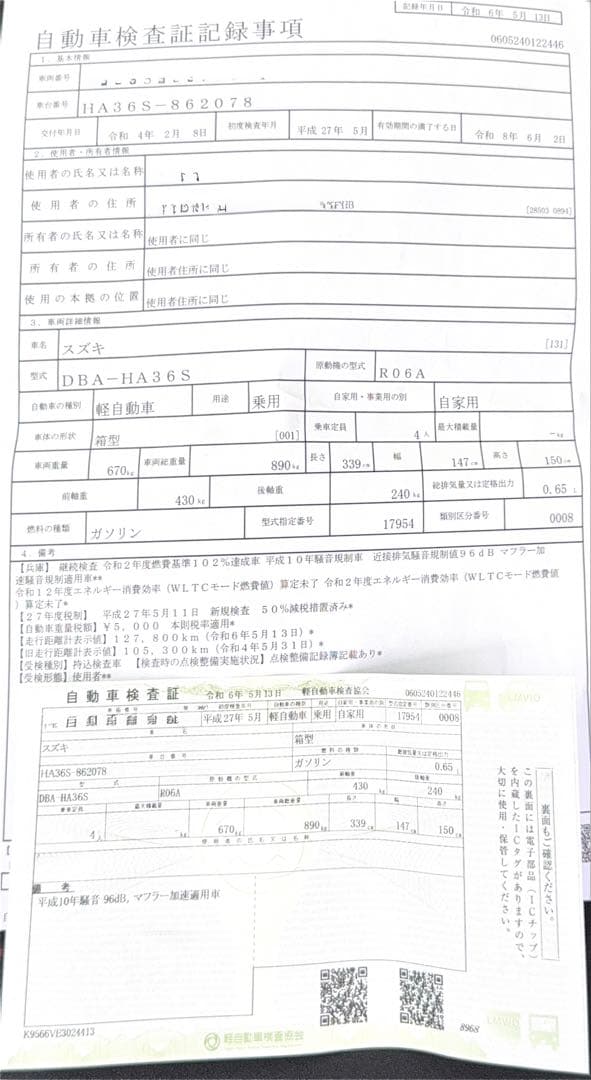 記録年月日 令和 6年 5月 13日
自動車検査証記録事項
0605240122446
1. 基本情報
車両番号
車台番号 HA36S-862078
交付年月日 令和 4年 2月 8日 初度検査年月 平成 27年 5月 有効期間の満了する日 令和 8年 6月 2日
2. 使用者・所有者情報
使用者の氏名又は名称
使用者の住所 [28503 0894]
所有者の氏名又は名称 使用者に同じ
所有者の住所 使用者住所に同じ
使用の本拠の位置 使用者住所に同じ
3. 車両詳細情報
車名 スズキ [131]
型式 DBA-HA36S 原動機の型式 R06A
自動車の種別 軽自動車 用途 乗用 自家用・事業用の別 自家用
車体の形状 箱型 [001] 乗車定員 4人 最大積載量 -kg
車両重量 670kg 車両総重量 890kg 長さ 339cm 幅 147cm 高さ 150cm
前軸重 430kg 後軸重 240kg 総排気量又は定格出力 0.65 L
燃料の種類 ガソリン 型式指定番号 17954 類別区分番号 0008
4. 備考
【兵庫】 継続検査 令和2年度燃費基準102%達成車 平成10年騒音規制車 近接排気騒音規制値96dB マフラー加
速騒音規制適用車**
令和12年度エネルギー消費効率(WLTCモード燃費値)算定未了 令和2年度エネルギー消費効率(WLTCモード燃費値
)算定未了*
【27年度税制】 平成27年5月11日 新規検査 50%減税措置済み*
【自動車重量税額】¥5,000 本則税率適用*
【走行距離計表示値】127,800km(令和6年5月13日)*
【旧走行距離計表示値】105,300km(令和4年5月31日)*
【受検種別】持込検査車 【検査時の点検整備実施状況】点検整備記録簿記載あり*
【受検形態】使用者**
自動車検査証 令和 6年 5月13日 軽自動車検査協会 0605240122446
車両番号 初度検査年月 自動車の種別 用途 自家用・事業用の別 型式指定番号 類別区分番号
平成27年 5月 軽自動車 乗用 自家用 17954 0008
車名 車体の形状
スズキ 箱型
車台番号 燃料の種類 総排気量又は定格出力
HA36S-862078 ガソリン 0.65 L
型式 原動機の型式 前軸重 後軸重
DBA-HA36S R06A 430kg 240kg
乗車定員 最大積載量 車両重量 車両総重量 長さ 幅 高さ
4人 -kg 670kg 890kg 339cm 147cm 150cm
使用者の氏名又は名称
備考
平成10年騒音 96dB, マフラー加速適用車
裏面もご確認ください。
この裏面には電子部品(ICチップ)
を内蔵したICタグがありますので、
大切に使用・保管してください。
K9566VE3024413
軽自動車検査協会
8968